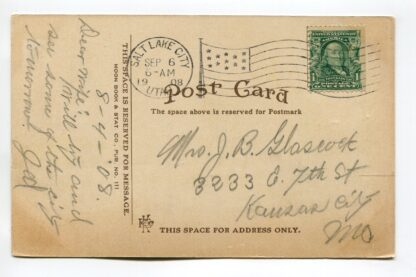 SALT LAKE CITY
SEP 6
6-AM
1908
UTAH
Post Card
The space above is reserved for Postmark
Mrs. J. B. Glascock
3233 E. 7th St
Kansas City
Mo
THIS SPACE FOR ADDRESS ONLY.
THIS SPACE IS RESERVED FOR MESSAGE.
MOON BOOK & STAY CO., PUB. NO. 111
8-4-'08
Dear
Will try and
see some of the city
tomorrow